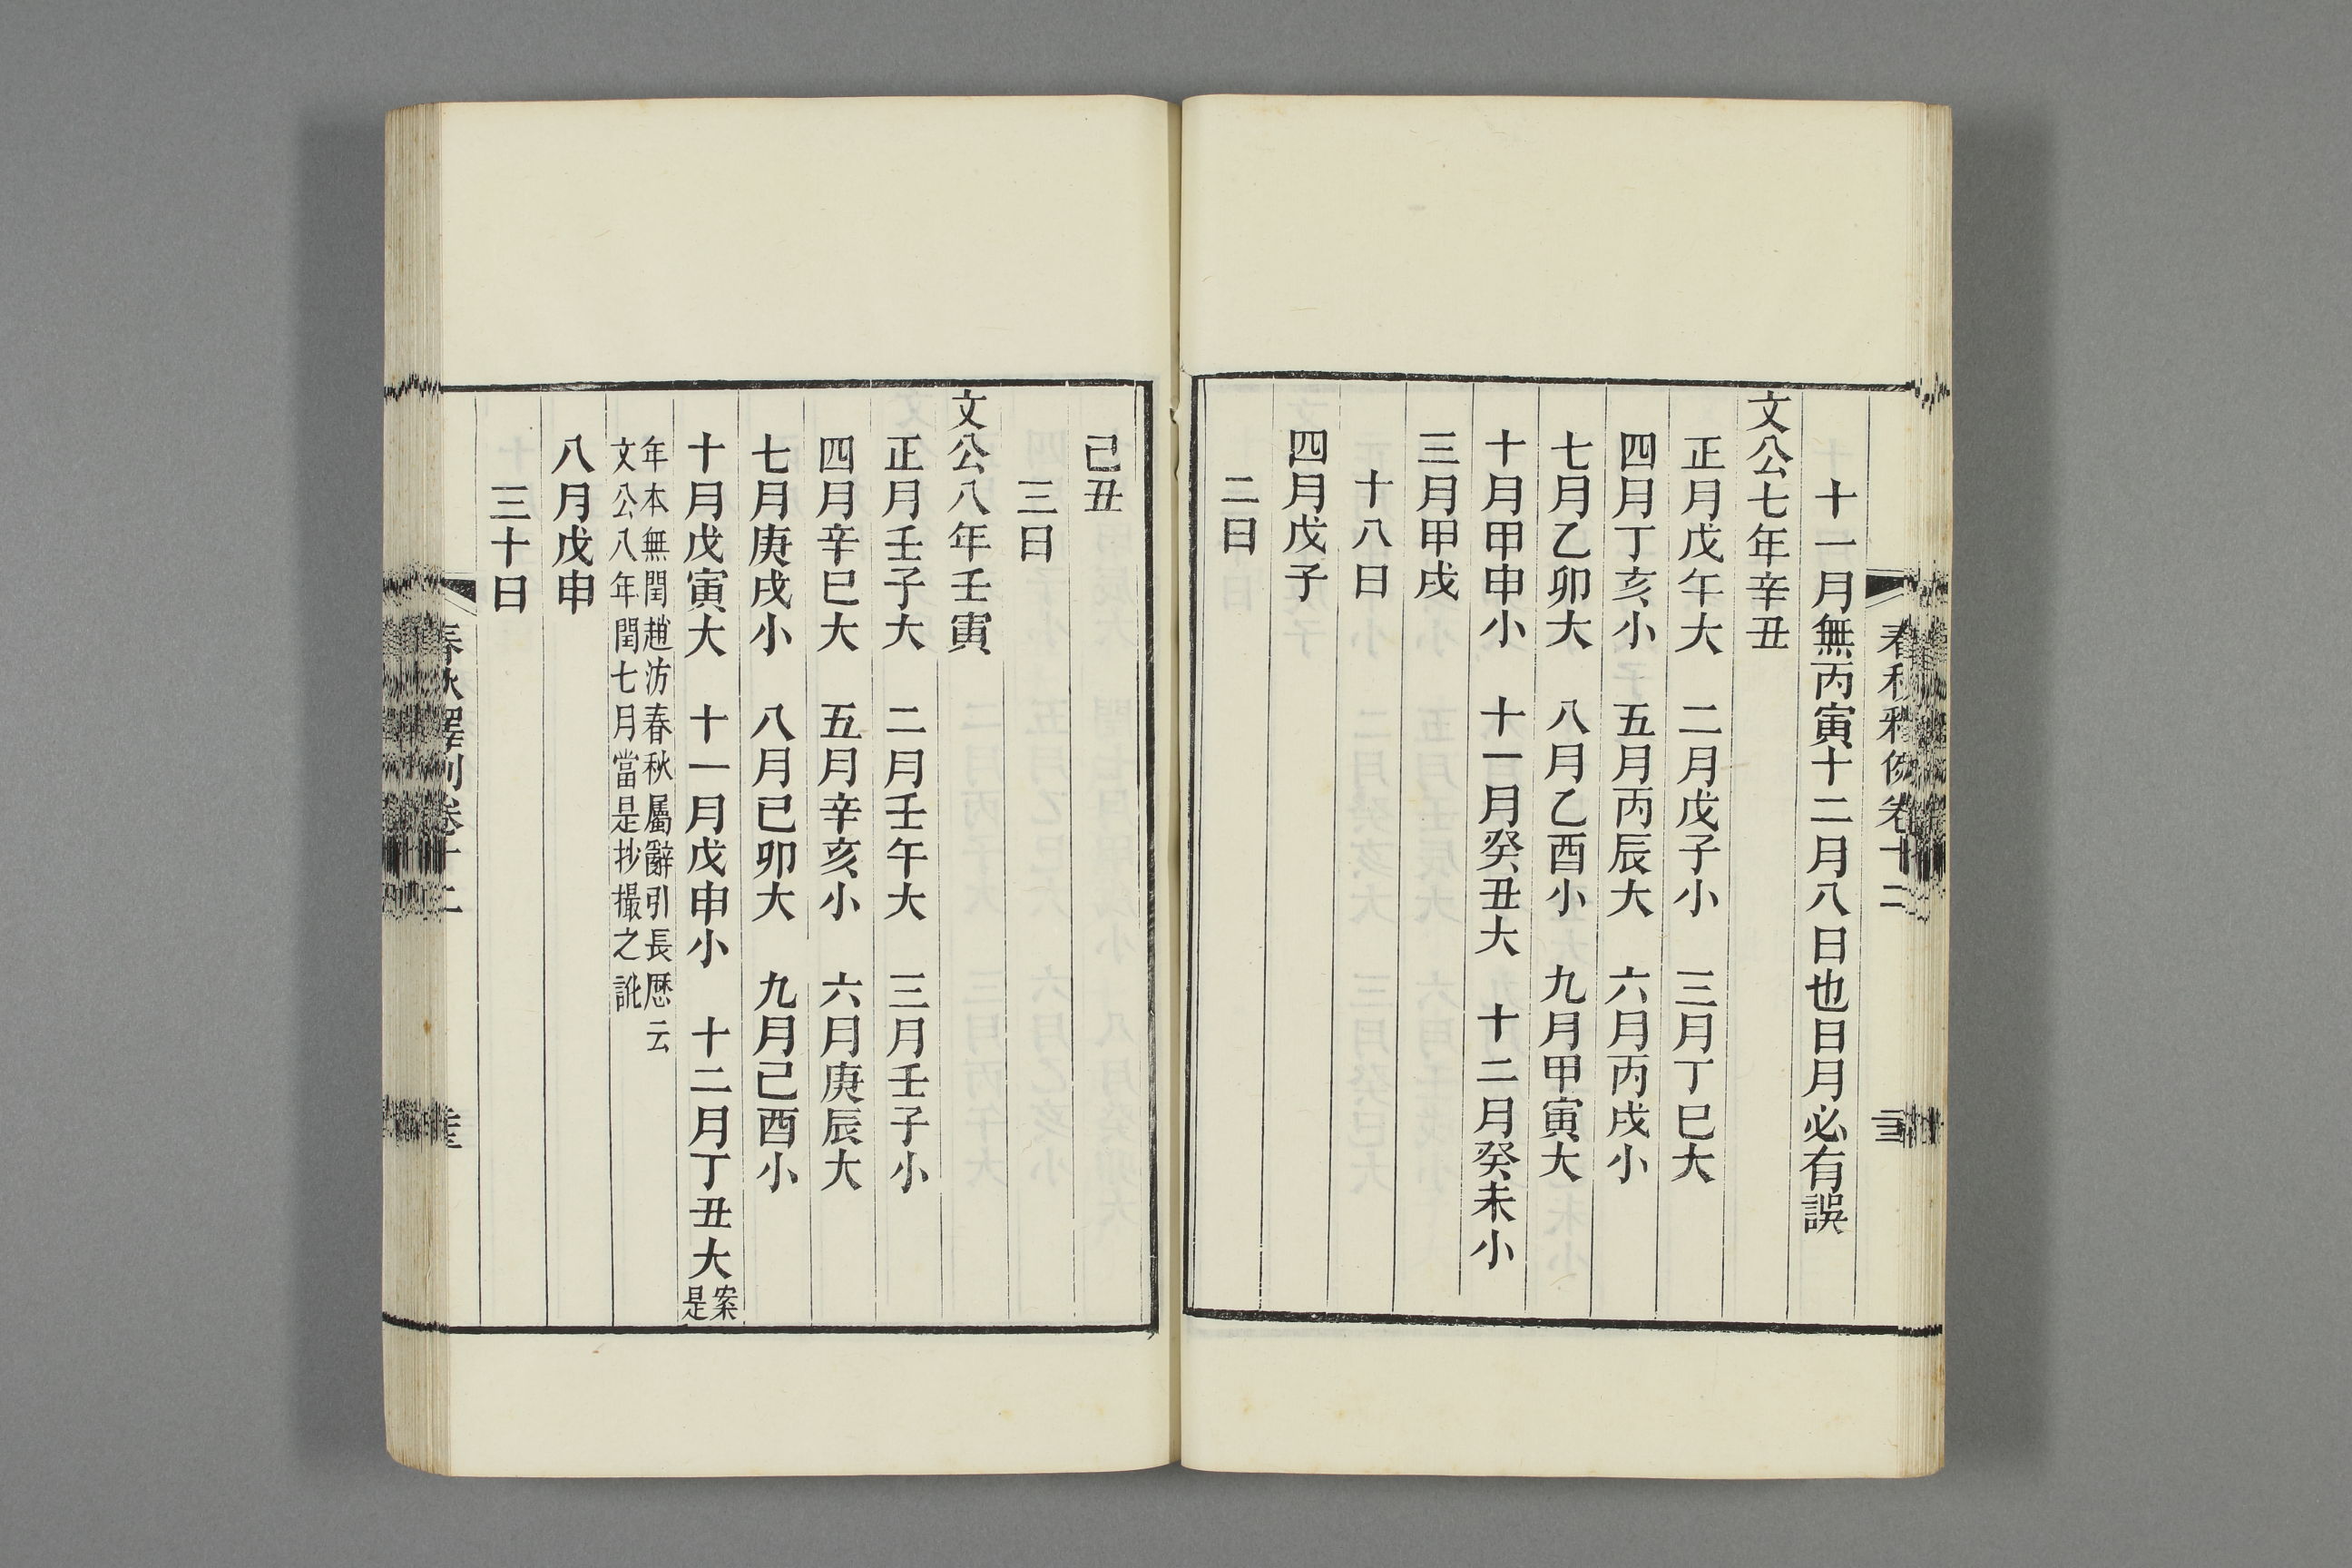 春秋釋例卷十二
十一月無丙寅十二月八日也日月必有誤
文公七年辛丑
正月戊午大　二月戊子小　三月丁巳大
四月丁亥小　五月丙辰大　六月丙戌小
七月乙卯大　八月乙酉小　九月甲寅大
十月甲申小　十一月癸丑大　十二月癸未小
三月甲戌
十八日
四月戊子
二日
己丑
三日
文公八年壬寅
正月壬子大　二月壬午大　三月壬子小
四月辛巳大　五月辛亥小　六月庚辰大
七月庚戌小　八月已卯大　九月己酉小
十月戊寅大　十一月戊申小　十二月丁丑大案是
年本無閏趙汸春秋屬辭引長厯云
文公八年閏七月當是抄撮之訛
八月戊申
三十日
春秋釋例卷十二